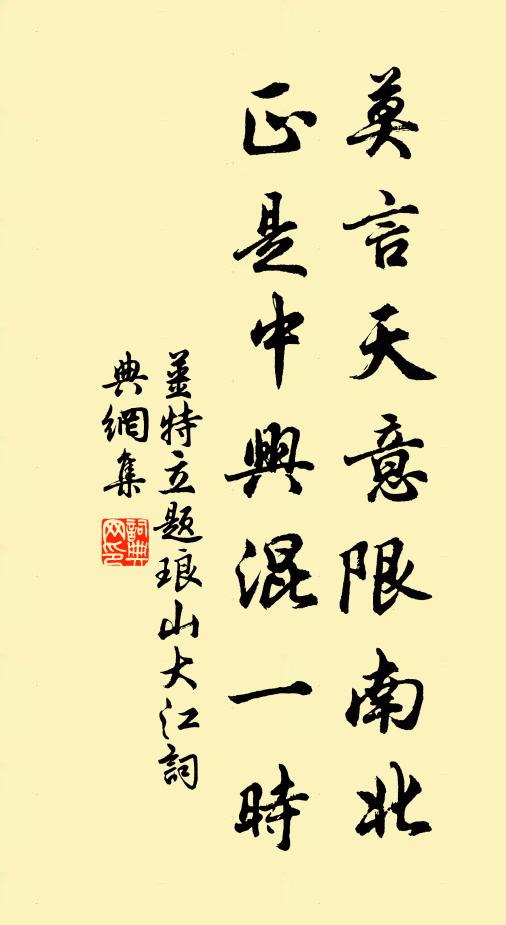 莫言天意限南北
正是中興混一時
姜特立題琅山大江詞
典網集
詞典網印